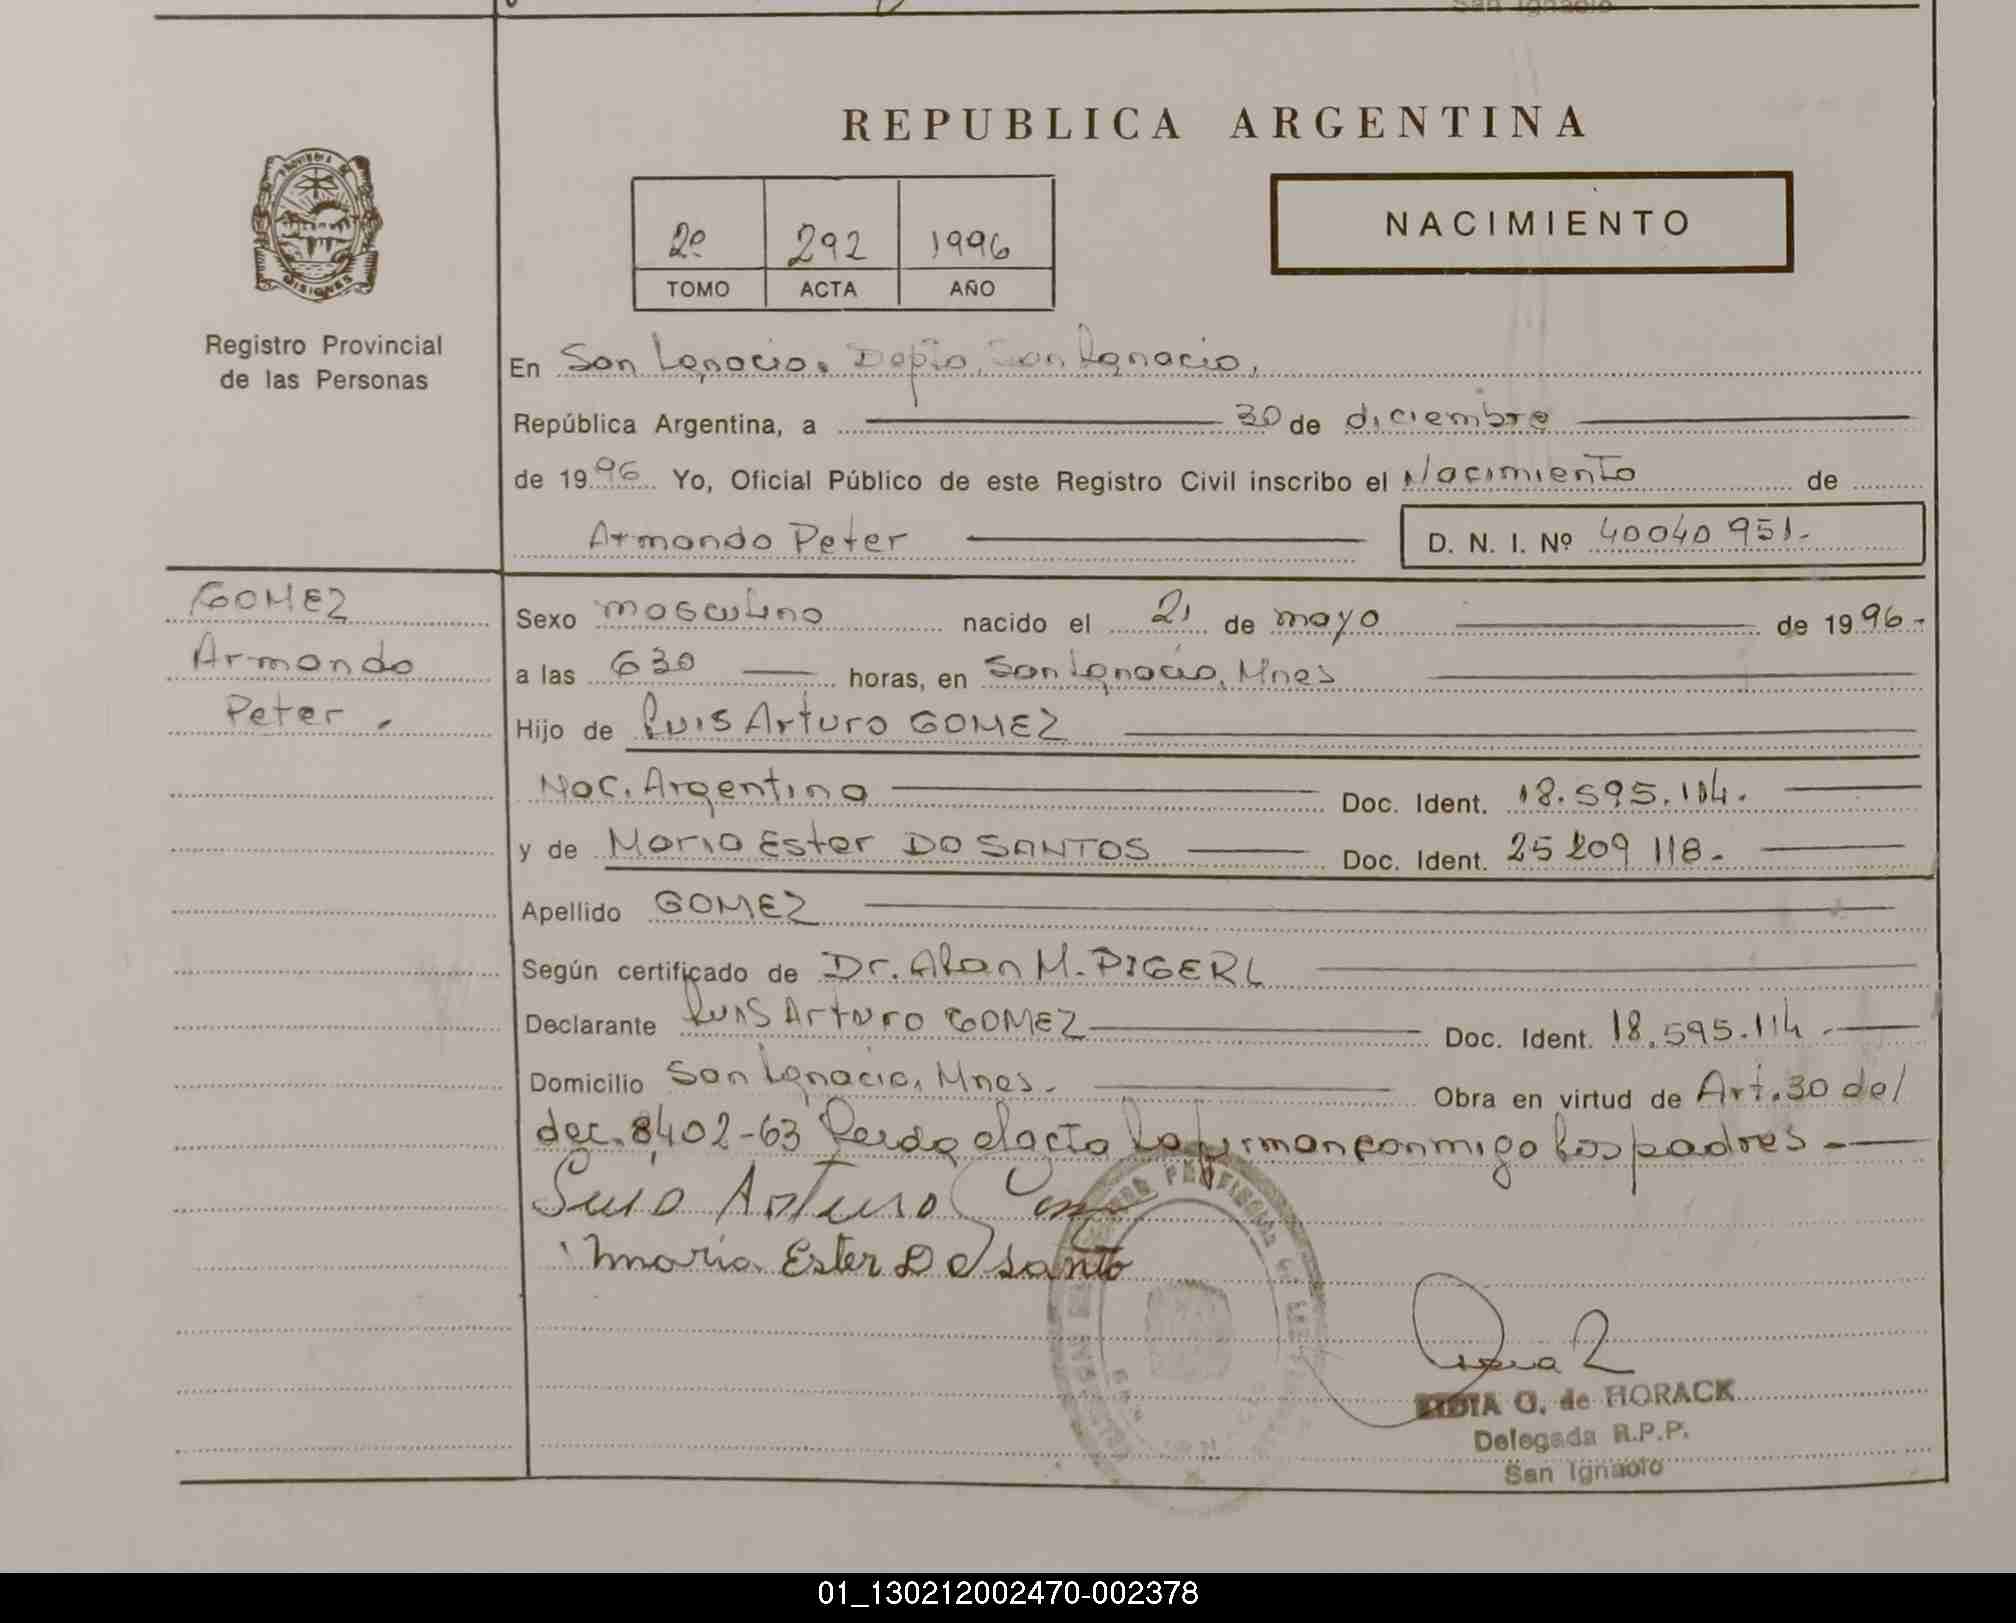 REPUBLICA ARGENTINA
NACIMIENTO
2º 292 1996
TOMO ACTA AÑO
MISIONES
Registro Provincial
de las Personas
En San Ignacio, Depto, San Ignacio,
República Argentina, a 30 de diciembre
de 1996 Yo, Oficial Público de este Registro Civil inscribo el Nacimiento de
Armando Peter D. N. I. Nº 40040951.-
GOMEZ
Armando
Peter.
Sexo masculino nacido el 21 de mayo de 1996.-
a las 630 horas, en San Ignacio, Mnes
Hijo de Luis Arturo GOMEZ
Nac. Argentina Doc. Ident. 18.595.114.
y de Maria Ester DO SANTOS Doc. Ident. 25 209 118.
Apellido GOMEZ
Según certificado de Dr. Alan M. PIGERL
Declarante Luis Arturo GOMEZ Doc. Ident. 18.595.114.
Domicilio San Ignacio, Mnes. Obra en virtud de Art. 30 del
dec. 8402-63 Leida el acta la firman conmigo los padres.-
Luis Arturo
Maria Ester Do santo
O. de HORACK
Delegada R.P.P.
San Ignacio
01_130212002470-002378